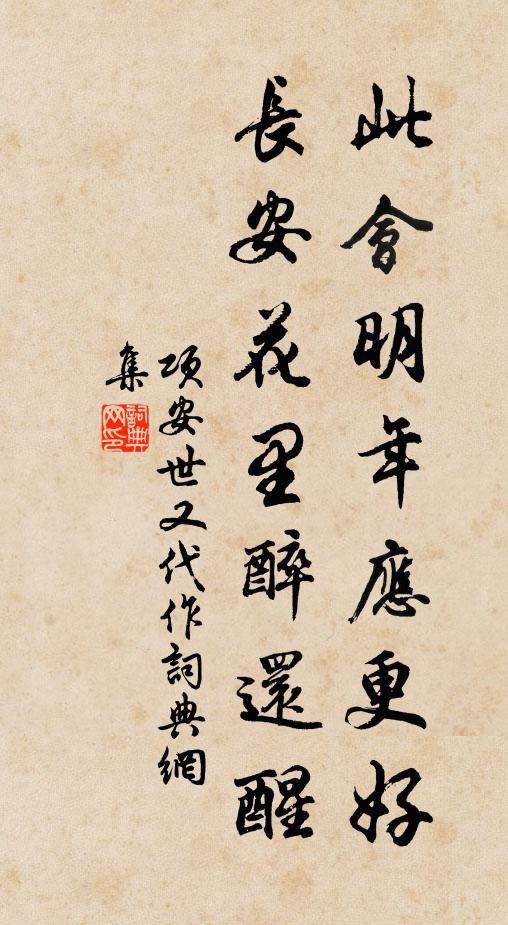 此會明年應更好
長安花里醉還醒
項安世又代作詞典網
集
詞典
网印